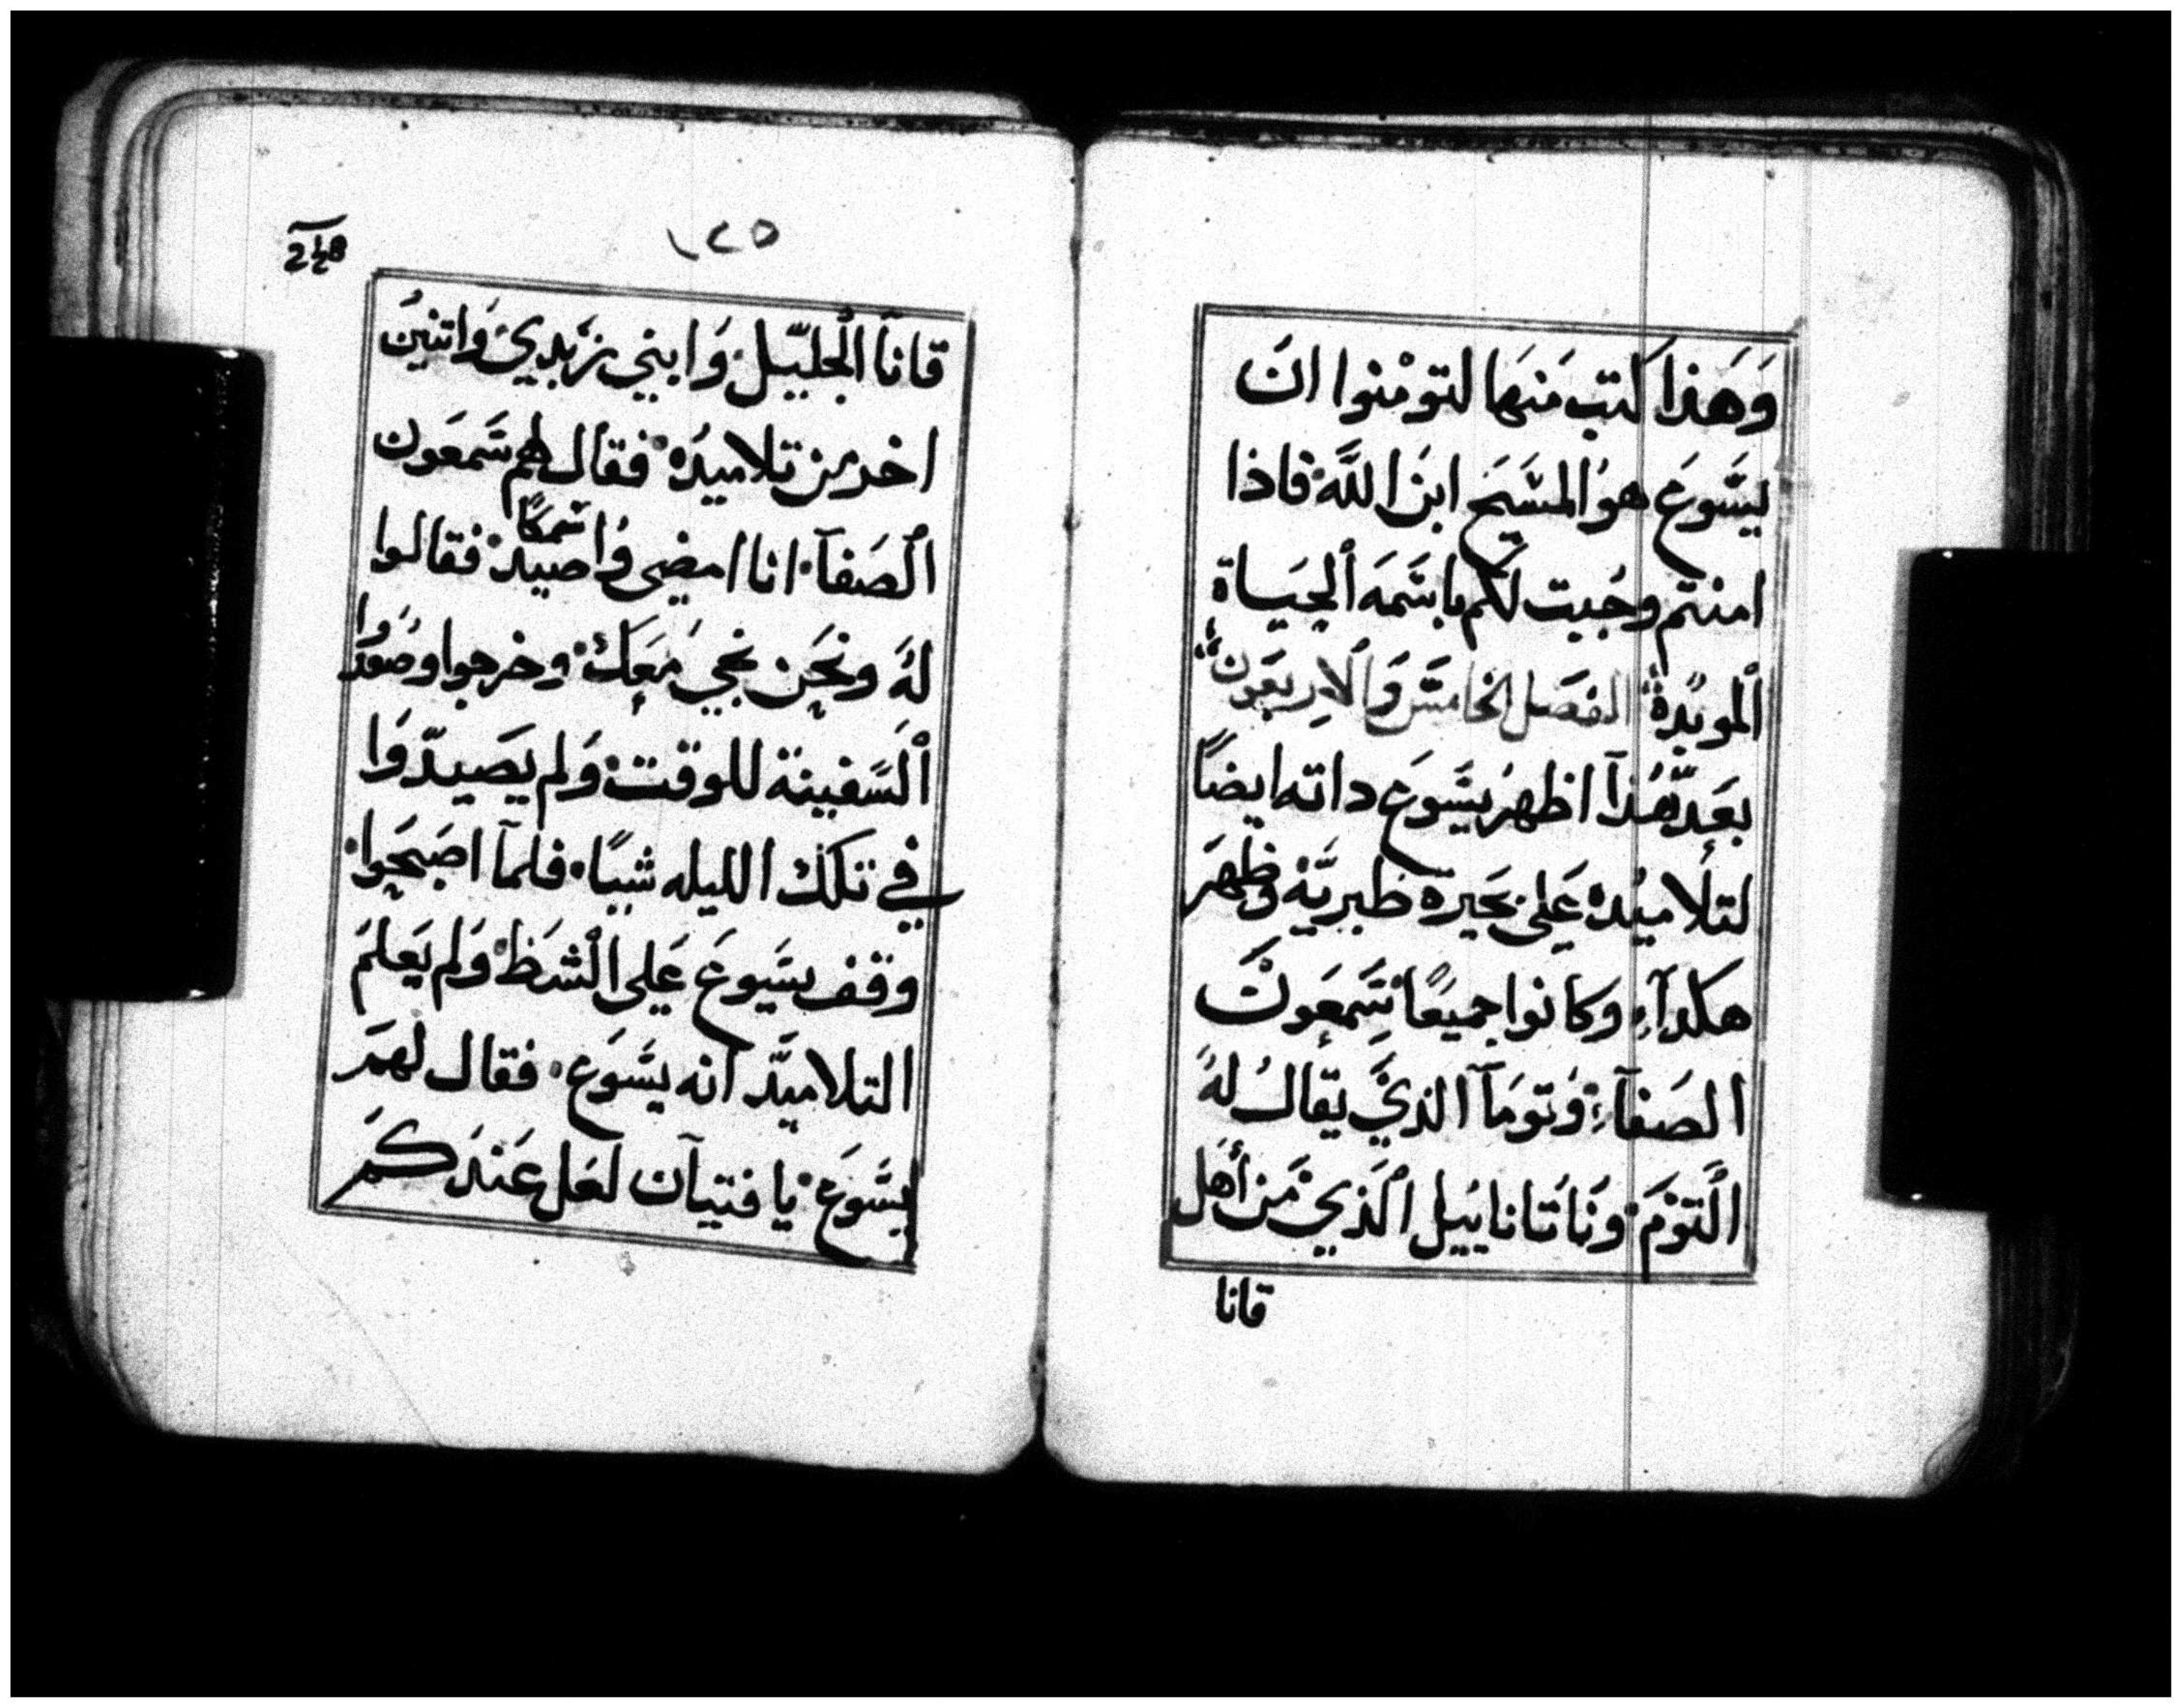 وَهَذا كتب مَنهَا لتومْنوا انَ
يسَّوعَ هوُ المسَّيَح ابنَ اللَّه فاذا
امنتم وجُبت لكم باسَّمَه اَلحيَاة
اَلموبدة الفصَل الخامسَّ وَالاربعَون
بعَدَّ هَذآ اظهرُ يسَّوعَ داته ايضاً
لتلاميُده عَلى بحَيرة طبريَّة وَظهَر
هكدآء وكانوا جميعًا سَّمعَونَ
الصَفآء وَتومَآ الذيَّ يقالُ لهُ
اَلتوْمَ وَناتَانايُيل اَلذي مَن أهَل
قانا
١٢٥
قاناَ الجليّل وَابني زبَدي وَاتنينُ
اخر من تلاميدُه فقال لهم سَّمعَون
اَلصَفآ انا امضي وُاصيد سمكًا فقالوا
لهُ ونحَن نجي مَعَك وخرجوا وصَعَدُوا
اَلسَّفينة للوقت وَلم يصَيدّوَا
في تلك الليله شيًا فلمآ اصَبَحوا
وقف يسَّوعَ عَلى اَلشَط وَلم يَعلمَ
التلاميدَّ انه يسَّوَع فقال لهمَ
يسَّوَع يا فتيآن لعَل عَندَكمَ